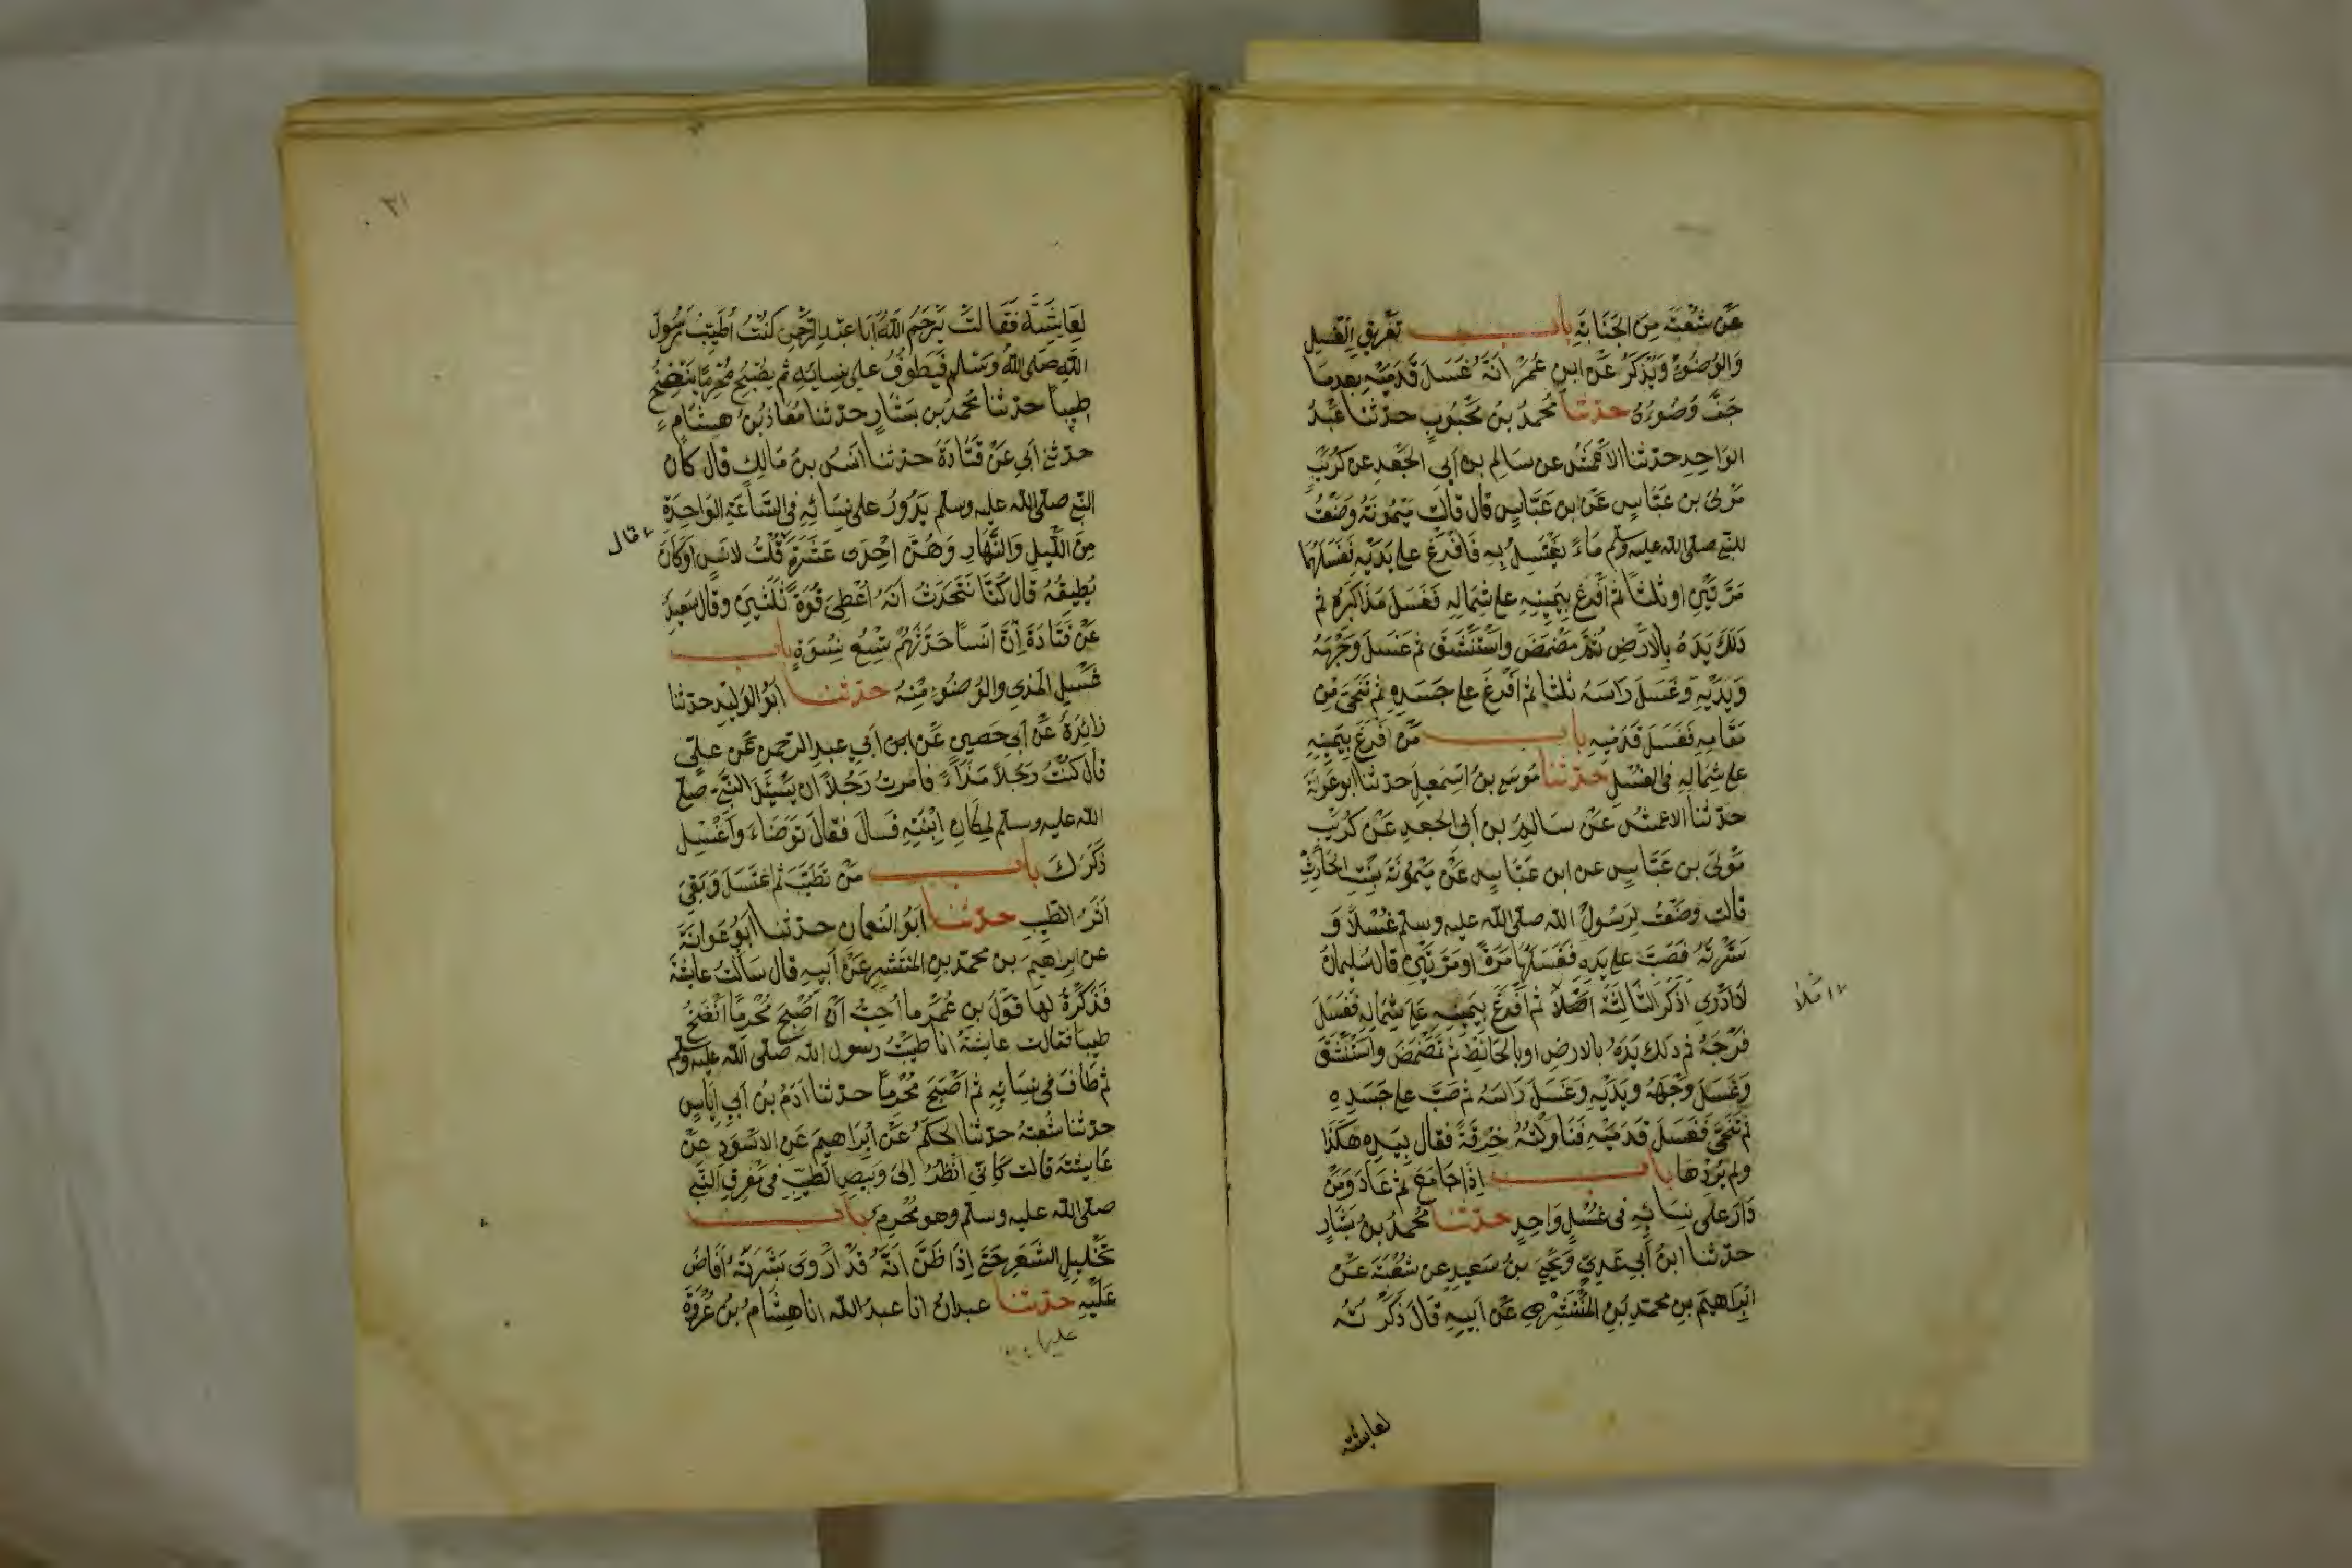 عَنْ شُعْبَةَ مِنَ الجَنَابَةِ بابـــ تَفْرِيقِ الغُسْلِ
وَالوُضُوْءِ وَيُذْكَرُ عَنِ ابنِ عُمَرَ اَنَّهُ غَسَلَ قَدَمَيْهِ بعدمَا
جَفَّ وَضُوءُهُ حدثنا مُحَمَّدُ بنُ مَحْبُوبٍ حدثنا عَبْدُ
الوَاحِدِ حدثنا الاَعْمَشُ عن سَالِمِ بنِ اَبى الجَعْدِ عن كُرَيْبٍ
مَوْلىَ بن عَبَّاسٍ عَنِ بنِ عَبَّاسٍ قال قالت مَيْمُونَةُ وَضَعْتُ
للنبىِ صلى الله عليه وسلم مَاءً يَغْتَسِلُ بِهِ فَاَفْرَغَ على يَدَيْهِ فَغَسَلَهُمَا
مَرَّتَيْنِ اوثلثاً ثم اَفْرَغَ بِيَمِينِهِ على شِمَالِهِ فَغَسَلَ مَذَاكِيرَهُ ثم
دَلَكَ يَدَهُ بِالاَرْضِ ثُمَّ مَضْمَضَ واسْتَنْشَقَ ثم غَسَلَ وَجْهَهُ
وَيَدَيْهِ وَغَسَلَ رَاسَهُ ثلثا ثم اَفْرَغَ على جَسَدِهِ ثم تَنَحَّى مِن
مَقَامِهِ فَغَسَلَ قَدَمَيْهِ بابـــ مَنْ اَفْرَغَ بِيَمِينِهِ
على شِمَالِهِ فى الغسْلِ حدثنا مُوسَى بنُ اسْمَعِيلَ حدثنا ابو عَوَانَةَ
حدثنا الاعمش عَن سَالِمِ بن اَبى الجعدِ عَن كُرَيْبٍ
مَوْلىَ بن عَبَّاسٍ عن ابن عَبَّاسٍ عَنْ مَيْمُونَةَ بِنْتِ الحَارِثِ
قالت وضَعْتُ لِرَسُولِ الله صلى الله عليه وسلم غُسْلاً وَ
سَتَرْتُهُ فَصَبَّ على يَدِهِ فَغَسَلَهَا مَرَّةً اومَرَّتَيْنِ قال سُلَيمانُ
لاَ اَدْرِى اَذَكَرَ الثَّالِثَةَ اَمْ لاَ ثم اَفْرَغَ بِيَمِينِهِ عَلَى شِمَالِهِ فَغَسَلَ
فَرْجَهُ ثم دلك يَدَهُ بالارض اوبالحَائِطِ ثم تَمَضْمَضَ واسْتَنْشَقَ
وَغَسَلَ وَجْهَهُ ويَدَيْهِ وَغَسَلَ رَاسَهُ ثم صَبَّ على جَسَدِهِ
ثم تَنَحَّى فَغَسَلَ قَدَمَيْهِ فَنَاوَلْتُهُ خِرْقَةً فقال بِيَدِهِ هَكَذَا
ولم يُرِدْهَا بابـــ اِذَا جَامَعَ ثم عَادَ وَمَن
دَارَ على نِسَائِهِ فى غُسْلٍ وَاحِدٍ حدثنا مُحَمَّدُ بنُ بَشَّارٍ
حدثنا ابنُ اَبى عَدِيٍّ وَيَحْيَى بنُ سَعِيدٍ عن شُعْبَةَ عَن
اِبْرَاهِيمَ بنِ محمدِ بنِ المُنْتَشِرِ عَن اَبِيهِ قَالَ ذَكَرْتُهُ
لعايشة
٣١
لِعَايِشَةَ فَقَالَتْ يَرْحَمُ اللهُ اَبَا عَبْدِ الرَّحْمنِ كُنْتُ اُطَيِّبُ رَسُولَ
اللهِ صلى الله وسَلم فَيَطُوفُ على نِسايِهِ ثم يُصْبِحُ مُحْرِمًا يَنْضَخُ
طِيباً حدثنا مُحَمَّدُ بن بَشَّارٍ حدثنا مُعَاذُ بنُ هِشَامٍ
حدثنى اَبِى عَنْ قَتَادَةَ حدثنا انَسُ بنُ مَالِكٍ قال كان
النبى صلى الله عليه وسلم يَدُورُ على نِسَائِهِ فى السَّاعَةِ الوَاحِدَةِ
مِنَ اللَّيلِ وَالنَّهَارِ وَهُنَّ اِحْدَى عَشَرَةَ قُلْتُ لانَسٍ اَوَكَانَ
قال
يُطِيقُهُ قال كُنَّا نَتَحَدَّثُ اَنَّهُ اُعْطِىَ قُوَّةَ ثَلثِينَ وقال سَعِيدٌ
عَنْ قَتَادَةَ اِنَّ انَساً حَدَّثَهُمْ تِسْعُ نِسْوَةٍ بابـــ
غَسْلِ المَذِىِ والوُضُوْءِ مِنْهُ حدثنا اَبُو الوَلِيدِ حدثنا
زَائِدَةُ عَنْ اَبى حَصِينٍ عَن ابن اَبى عبدِ الرحمن عَن علىٍ
قال كُنْتُ رَجُلاً مَذَّاءً فامرتُ رَجُلاً ان يَسْئَلَ النَّبِىَّ صلى
الله عليه وسلم لِمَكَانِ ابْنَتِهِ فَسالَ فقالَ تَوَضَاء وَاغْسِل
ذَكَرَكَ بابـــ مَنْ تَطَيَّبَ ثم اغتسَلَ وَبَقِىَ
اَثَرُ الطِيبِ حدثنا اَبُو النُعمانِ حدثنا اَبُو عَوَانَةَ
عن ابراهِيمَ بن محمد بنِ المنتَشِرِ عَنْ اَبِيهِ قال سَاَلْتُ عايشَةَ
فَذَكَرْتُ لهَا قَوْلَ بن عُمَرَ ما اُحِبُّ اَنْ اُصْبِحَ مُحْرِمًا اَنْضَخُ
طِيبا فقالت عايشَةُ انا طيَّبْتُ رسول الله صلى الله عليه وسلم
ثم طَافَ فى نِسَائِهِ ثم اَصْبَحَ مُحْرِماً حدثنا ادَمُ بنُ اَبى اِيَاسٍ
حدثنا شُعبَةُ حدثنا الحَكَمُ عَنْ اِبْرَاهِيمَ عَنِ الاسْوَدِ عَنْ
عَايِشَةَ قالت كَاَنِّى اَنْظُرُ اِلَى وَبِيصِ الطيبِ فى مَفْرِقِ النَّبى
صلى الله عليه وسلم وهو مُحْرِمٌ بابـــ
تَخْلِيلِ الشَّعَرِ حَتى اِذَا ظَنَّ اَنَّهُ قَدْ اَرْوَى بَشَرَتَهُ اَفَاضَ
عَلَيْهِ حدثنا عبدانُ انا عبدُ الله انا هِشَامُ بنُ عُرْوَةَ
عليها